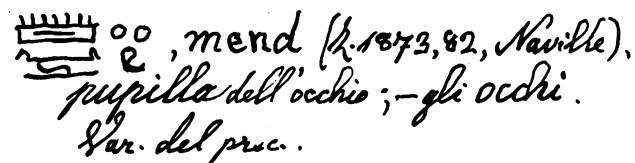 , mend (Z. 1873, 82, Naville),
pupilla dell'occhio; – gli occhi.
Var. del prec..